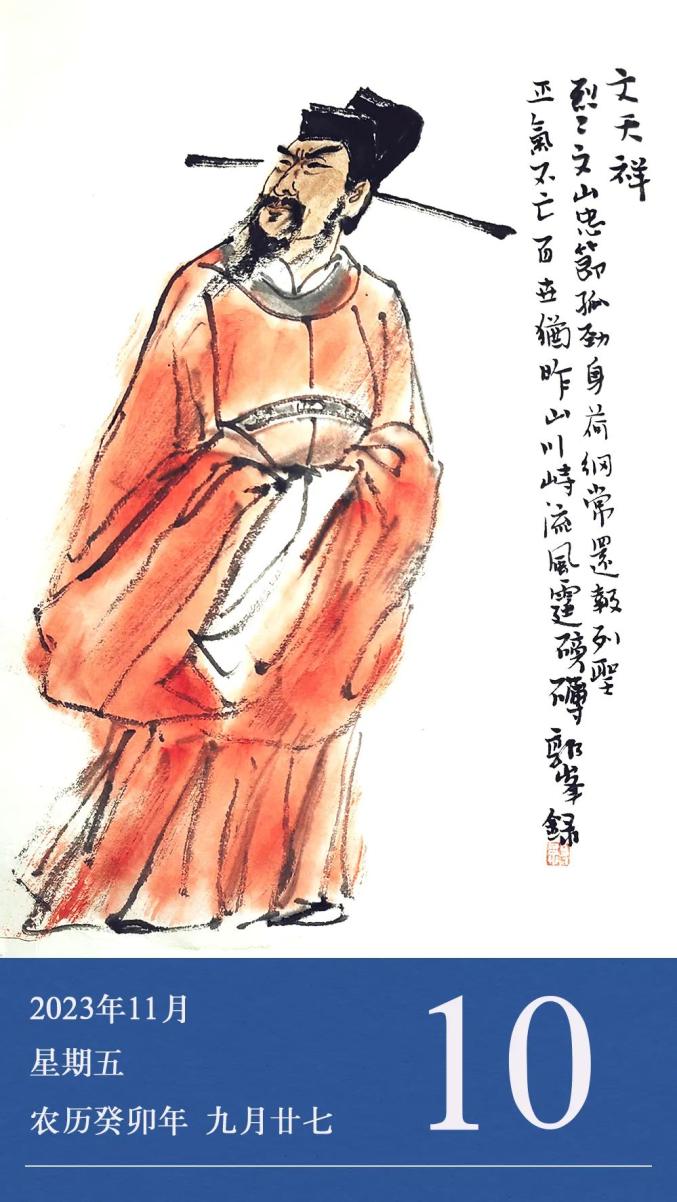 文天祥
烈〻文山忠節孤劲身荷綱常還報列聖
正氣不亡百世猶昨山川峙流風霆磅礴郭峯録
2023年11月
星期五
农历癸卯年 九月廿七
10